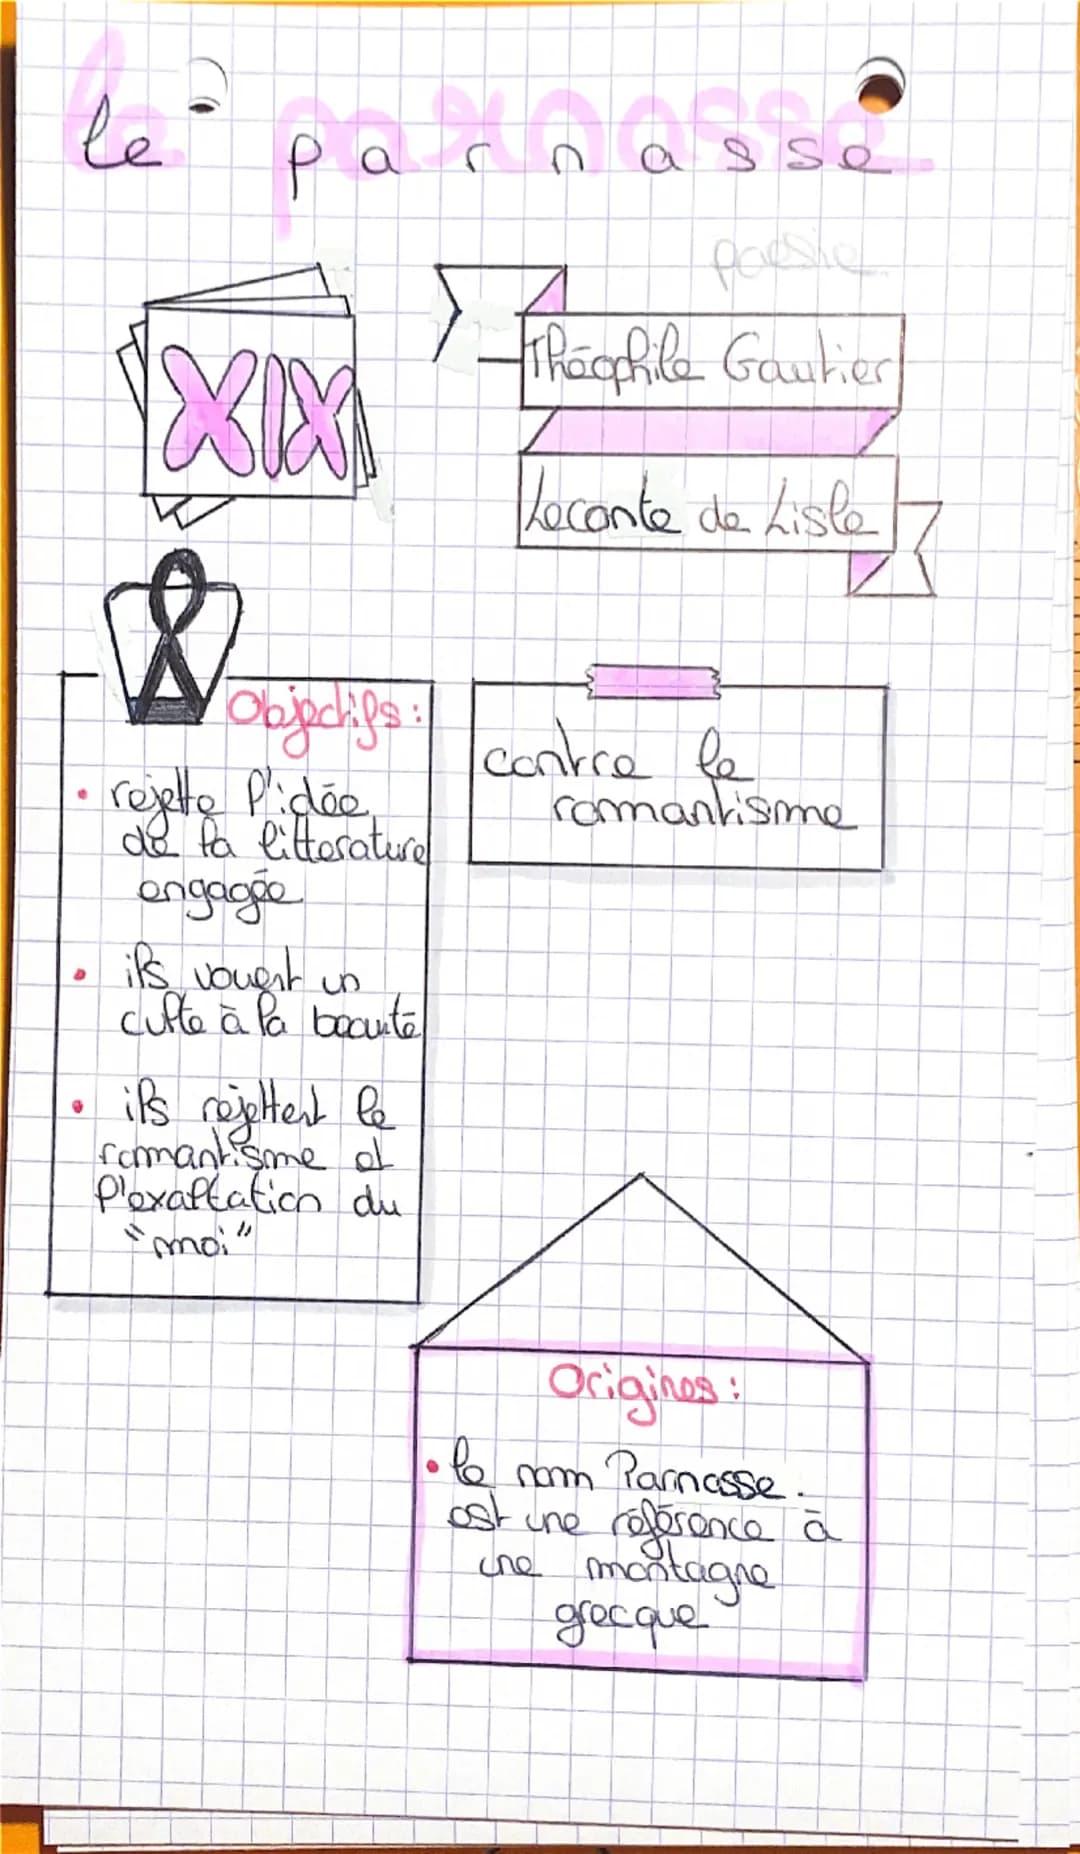 le parnasse
poésie
XIX
Théophile Gautier
Leconte de Lisle
Objectifs :
• rejette l'idée
de la littérature
engagée
• ils vouent un
culte à la beauté
• ils rejettent le
romantisme et
l'exaltation du
"moi"
contre le
romantisme
Origines :
• le nom Parnasse.
est une référence à
une montagne
grecque